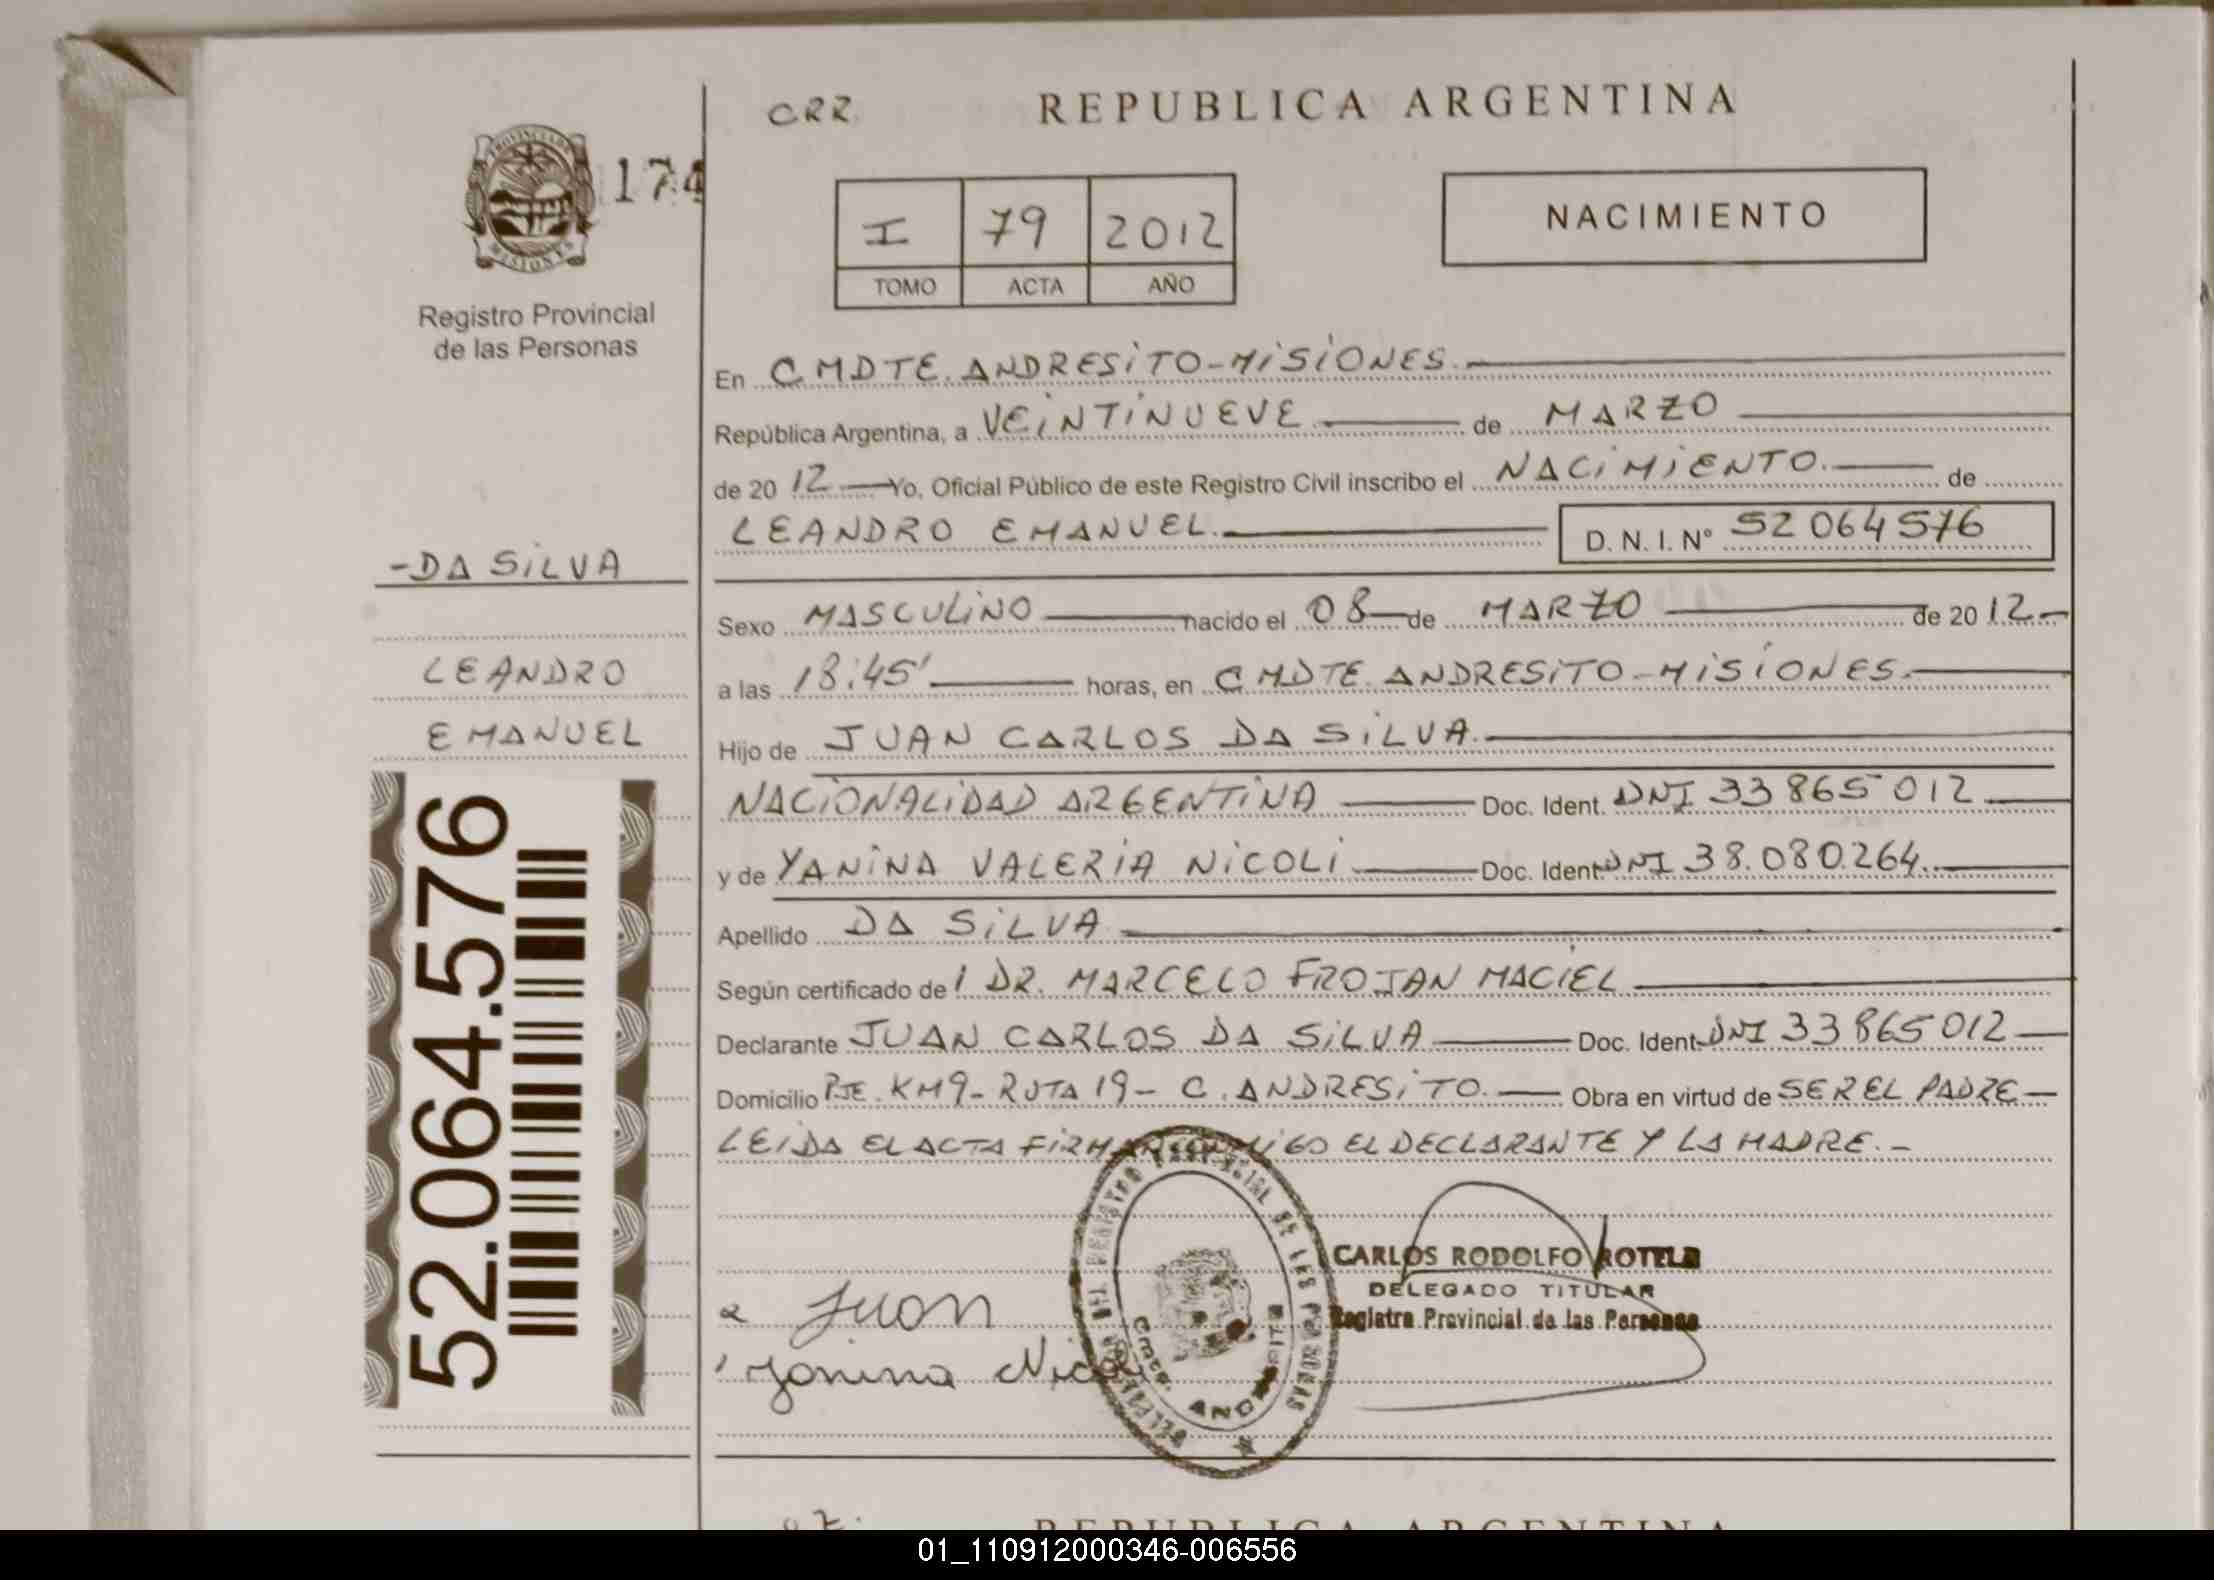 CRR.
REPUBLICA ARGENTINA
PROVINCIA DE
MISIONES
174
Registro Provincial
de las Personas
I 79 2012
TOMO ACTA AÑO
NACIMIENTO
En CMDTE. ANDRESITO-MISIONES.
República Argentina, a VEINTINUEVE de MARZO
de 2012 Yo, Oficial Público de este Registro Civil inscribo el NACIMIENTO. de
LEANDRO EMANUEL. D. N. I. Nº 52 064 576
-DA SILVA
LEANDRO
EMANUEL
52.064.576
Sexo MASCULINO nacido el 08 de MARZO de 2012-
a las 18:45' horas, en CMDTE. ANDRESITO-MISIONES.
Hijo de JUAN CARLOS DA SILVA.
NACIONALIDAD ARGENTINA Doc. Ident. DNI 33 865 012
y de YANINA VALERIA NICOLI Doc. Ident. DNI 38.080.264.
Apellido DA SILVA
Según certificado de l DR. MARCELO FROJAN MACIEL
Declarante JUAN CARLOS DA SILVA Doc. Ident. DNI 33 865 012
Domicilio PJE. KM9- RUTA 19- C. ANDRESITO. Obra en virtud de SER EL PADRE-
LEIDA EL ACTA FIRMAN CONMIGO EL DECLARANTE Y LA MADRE.-
CARLOS RODOLFO ROTELA
DELEGADO TITULAR
Registro Provincial de las Personas
Juan
Yanina Nicoli
REGISTRO PROVINCIAL DE LAS PERSONAS
Cmdte. ANDRESITO
REPUBLICA ARGENTINA
01_110912000346-006556